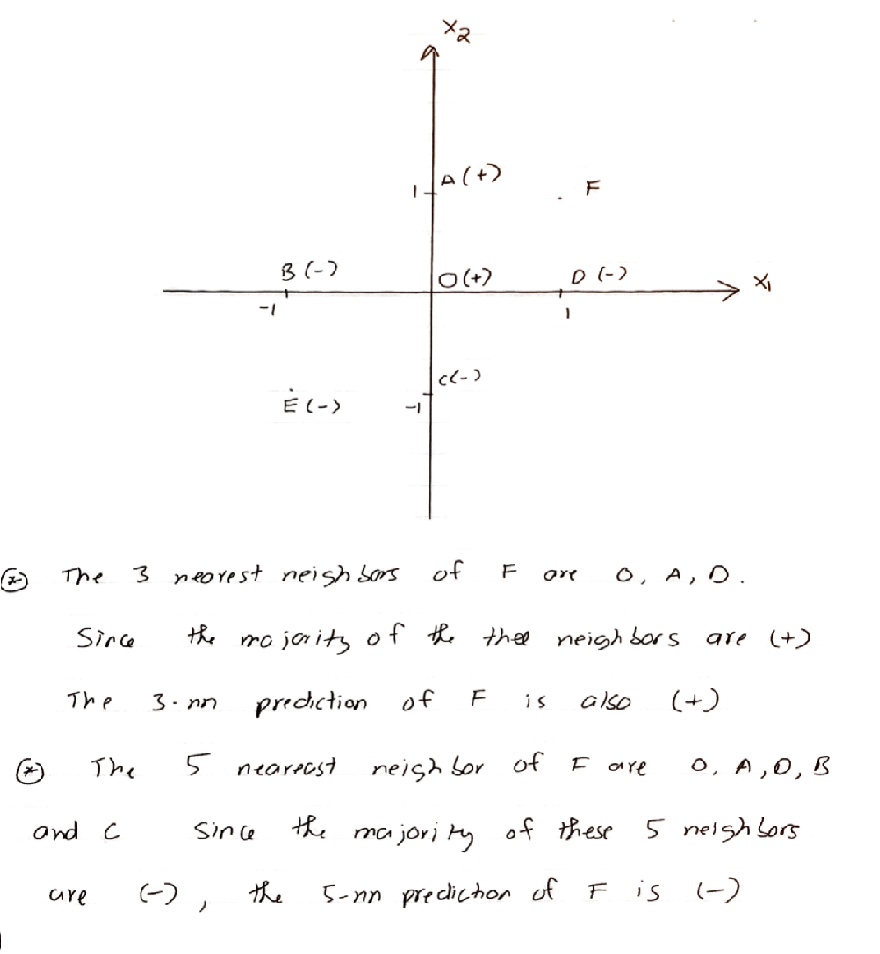 X2
1 A(+) F
B(-) O(+) D(-) X1
-1 1
C(-)
E(-) -1
(*) The 3 nearest neighbors of F are O, A, D.
Since the majority of the three neighbors are (+)
The 3-nn prediction of F is also (+)
(*) The 5 nearest neighbor of F are O, A, D, B
and C Since the majority of these 5 neighbors
are (-), the 5-nn prediction of F is (-)